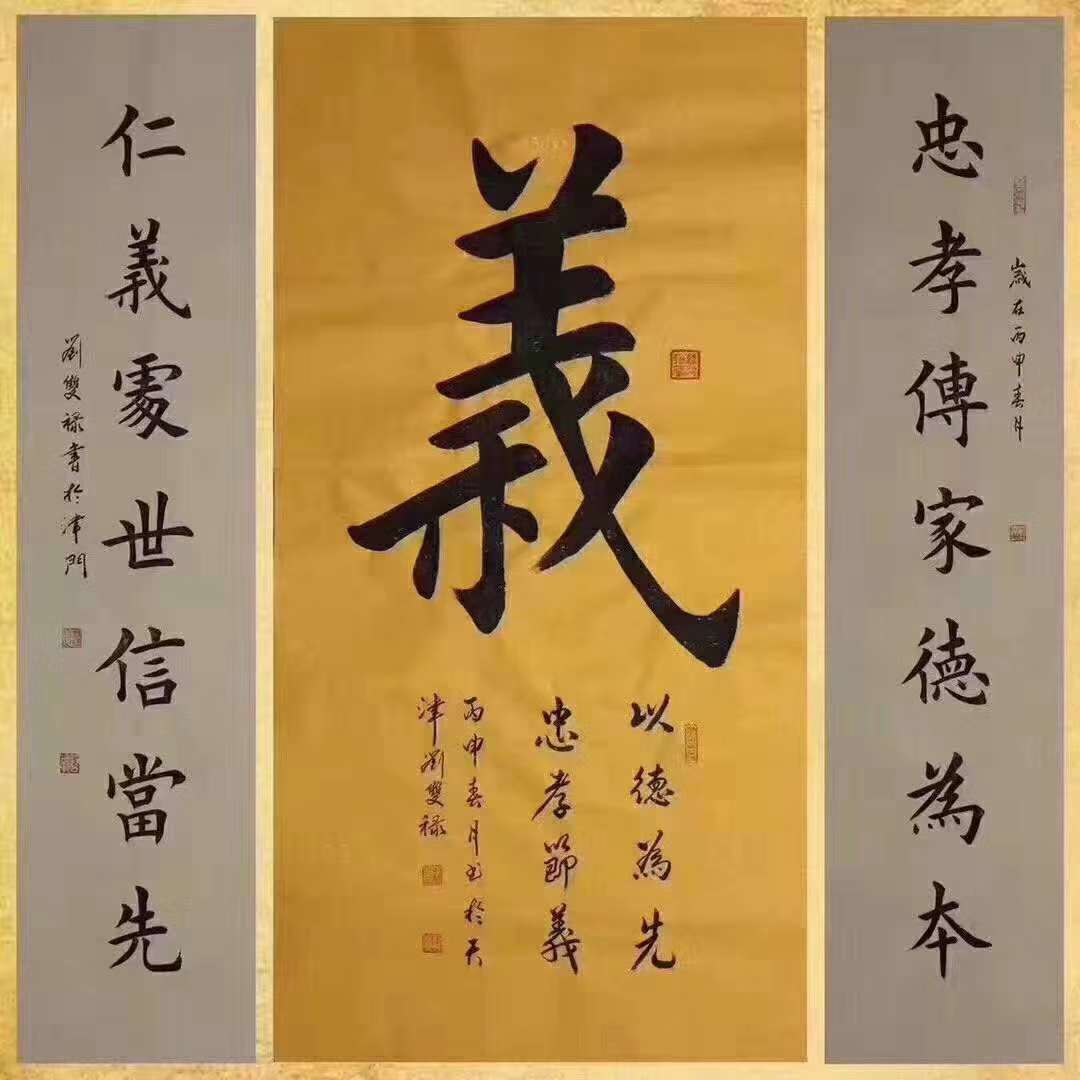 忠孝傳家德為本
歲在丙申春月
義
以德為先
忠孝節義
丙申春月書於天
津劉雙祿
仁義處世信當先
劉雙祿書於津門